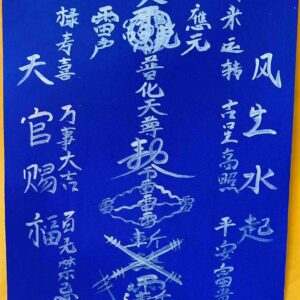 风生水起
来运转
吉星高照
平安富
應元
普化天尊
勅令
雷雷雷
斬
雷声
禄寿喜
万事大吉
百无禁忌
天官赐福